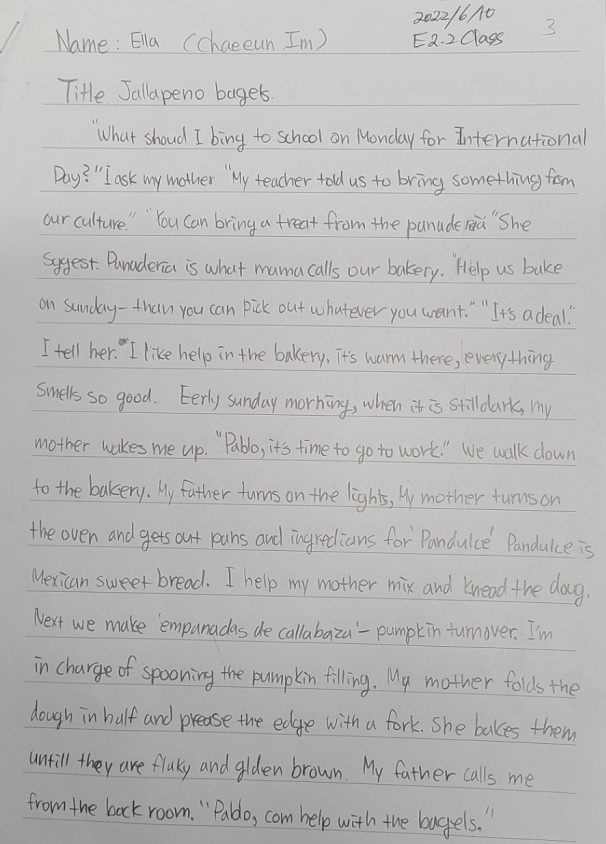 2022/6/10
Name: Ella (Chaeeun Im) E2-2 Class 3
Title Jallapeno bagels.
"What shoud I bing to school on Monday for International
Day?" I ask my mother "My teacher told us to bring something from
our culture." "You can bring a treat from the panaderia" She
Sggest. Panaderia is what mama calls our bakery. "Help us bake
on sunday- than you can pick out whatever you want." "It's a deal."
I tell her. "I like help in the bakery. it's warm there, everything
Smells so good. Eerly sunday morning, when it is still dark, my
mother wakes me up. "Pablo, it's time to go to work." We walk down
to the bakery. My father turns on the lights, My mother turns on
the oven and gets out pans and ingredians for 'Pandulce' Pandulce is
Mexican sweet bread. I help my mother mix and knead the doug.
Next we make 'empanadas de callabaza'- pumpkin turnover. I'm
in charge of spooning the pumpkin filling. My mother folds the
dough in half and prease the edge with a fork. She bakes them
untill they are flaky and glden brown. My father calls me
from the back room. "Pablo, com help with the bagels."